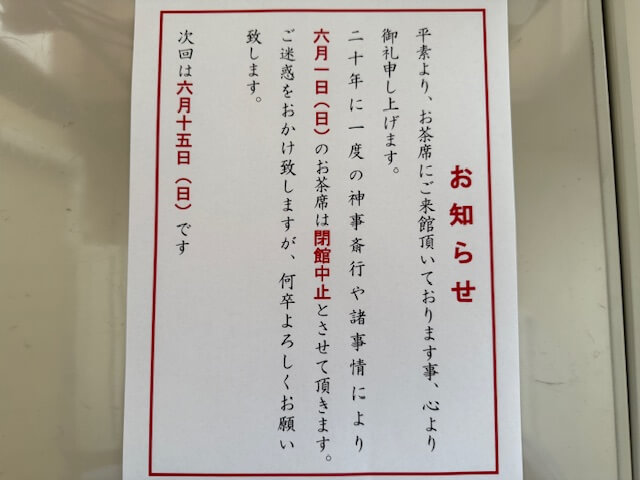 お知らせ
平素より、お茶席にご来館頂いております事、心より
御礼申し上げます。
二十年に一度の神事斎行や諸事情により
六月一日（日）のお茶席は閉館中止とさせて頂きます。
ご迷惑をおかけ致しますが、何卒よろしくお願い
致します。
次回は六月十五日（日）です